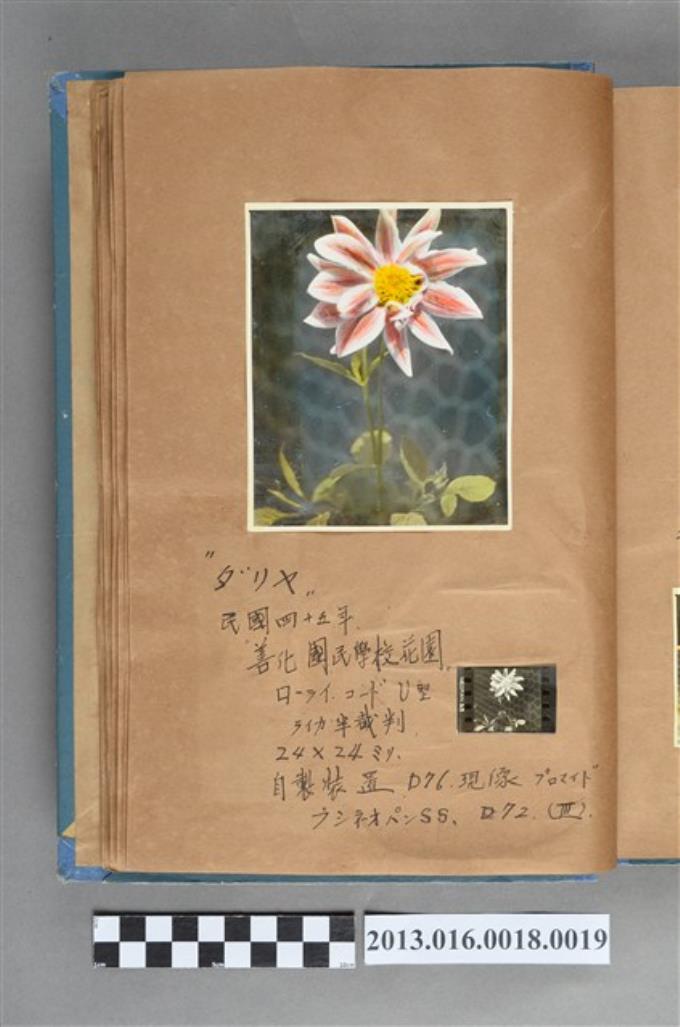 "ダリヤ"
民國四十五年.
善化國民學校花園.
ローライ.コード U型
ライカ半裁判.
24×24ミリ.
自製裝置 D76.現像 ブロマイド
ネオパンSS、D72.(Ⅲ).
2013.016.0018.0019